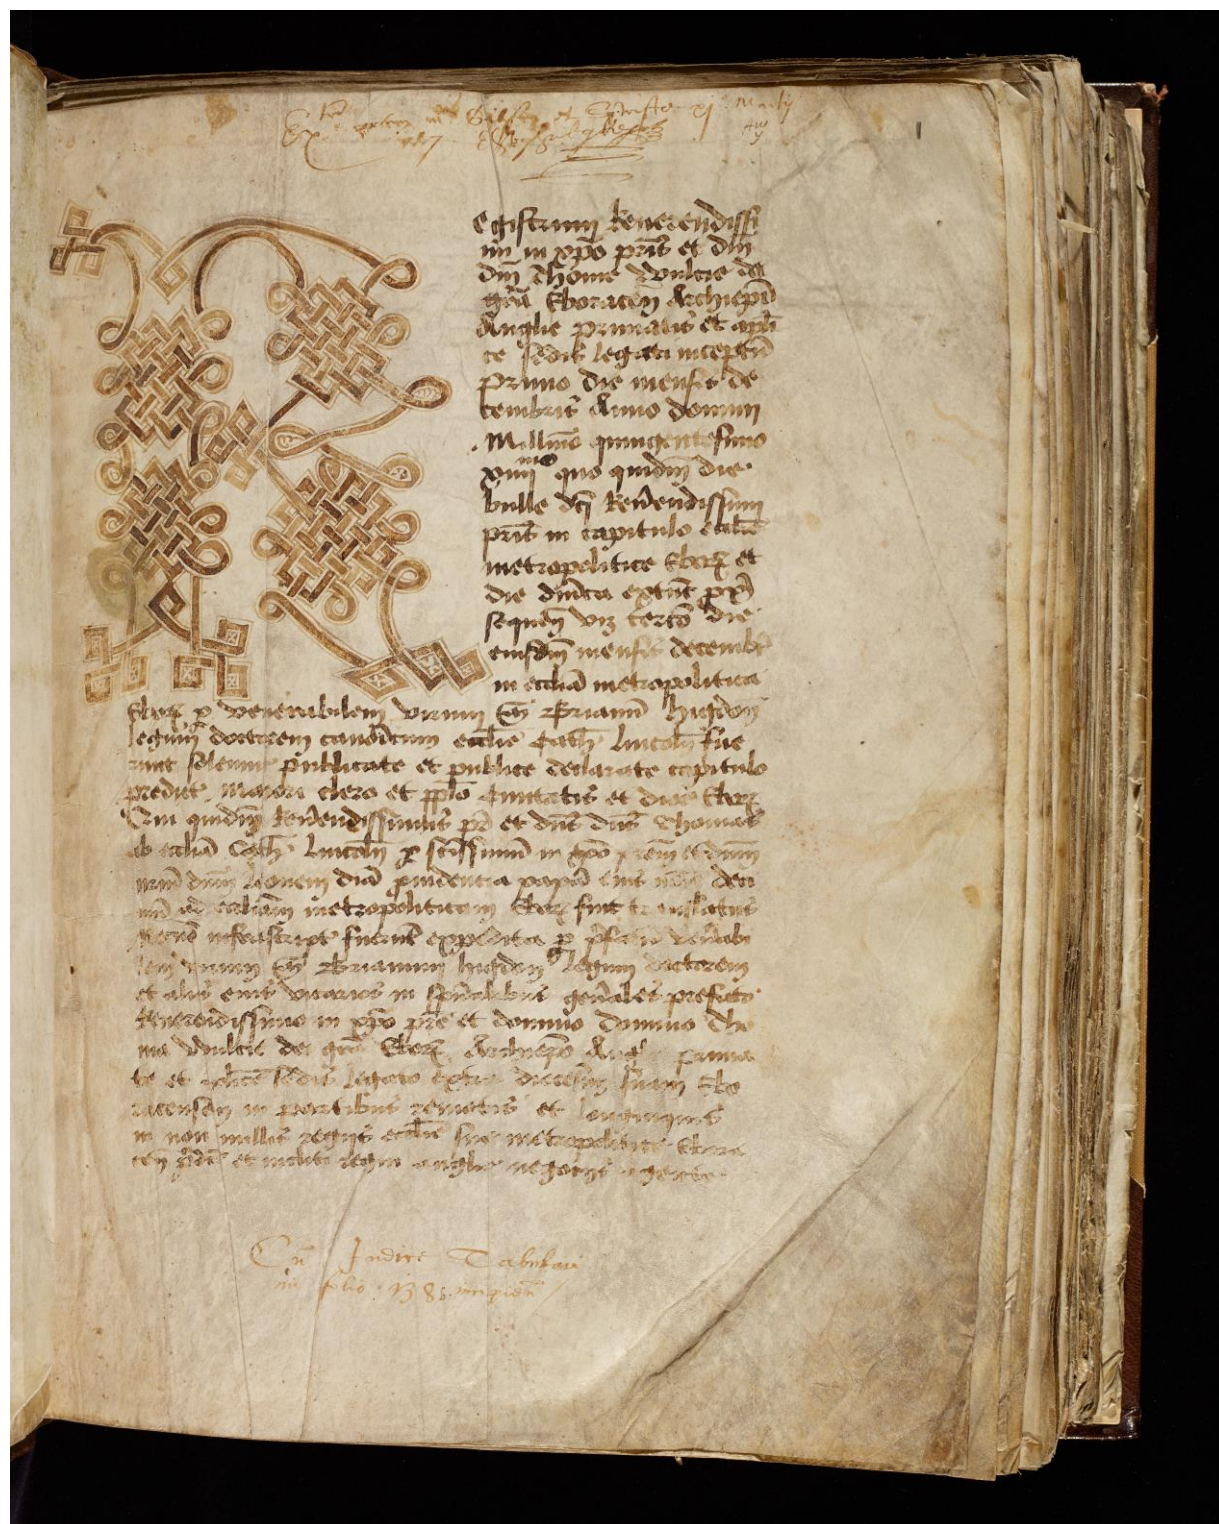 Registrum Reuerendissi
mi in xp̄o pr̄is et dn̄i
dn̄i Thome Wulcie dei
gr̄a Eboracen̄ Archiep̄i
Anglie primatis et apl̄i
ce sedis legati inceptū
primo die mensis de
cembris Anno domini
Millīmo quingentesimo
xiiij^mo quo quidm̄ die
bulle dc̄i Reūendissimi
pr̄is in capitulo eccl̄ie
metropolitice Ebor̄ et
die dn̄ica extūc prox̄
sequen̄ viz tercio die
eiusdm̄ mensis decembr̄
in eccliā metropolitica
Ebor̄ p venerabilem virum Mḡrm Brianū higdon
legum doctorem canonicum eccl̄ie Cath̄ Lincoln̄ fue
runt solenniter publicate et publice declarate capitulo
predict̄ maiori clero et pplo Ciuitatis et dioc̄ Ebor̄
Qui quidm̄ Reūendissimus pr̄ et dn̄s dn̄s Thomas
ab eccliā Cath̄ Lincoln̄ p sc̄issimum in xp̄o prēm et dnm̄
nr̄m dnm̄ Leonem diuā prouidencia papā eius nōis deci
mū ad eccliam metropoliticam Ebor̄ fuit translatus
Necnō infrascript̄ fuerūt expedita p p̄fatū ven̄abi
lem virum Mḡrm Brianum higdon legum doctorem
et alios eius vicarios in sp̄ualibus gen̄ales prefato
Reuerendissimo in xp̄o pr̄e et domino domino Tho
ma Wulcie dei gr̄a Ebor̄ Archiep̄o Angl̄ prima
te et apl̄ice sedis legato extra diocesim suam Ebo
racensem in partibus remotis et longinquis
in non nullis regijs eccl̄ie sue metropolitice Ebora
cen̄ p̄dict̄ et incliti regni anglie negocijs agente
Cū Indice Tabulari
in folio 138 incipien̄